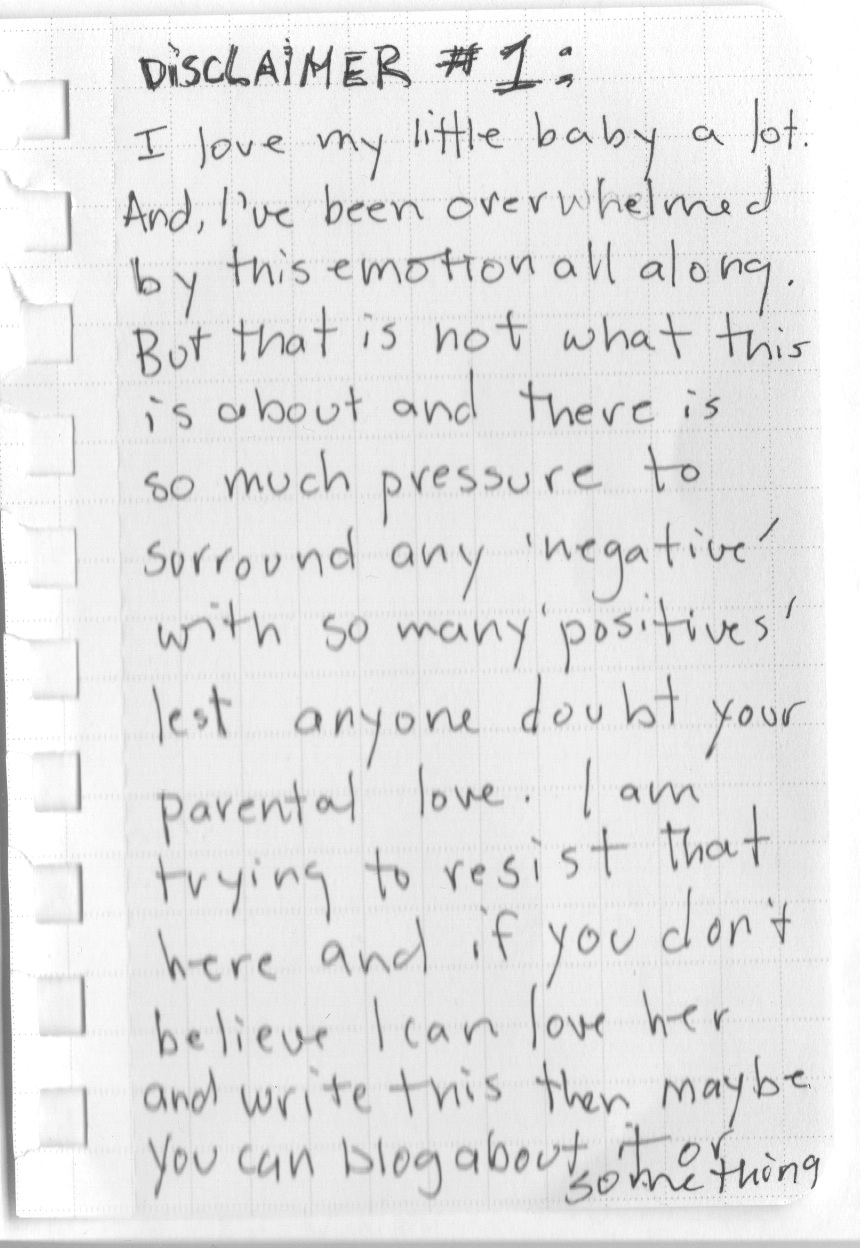 DISCLAIMER #1:
I love my little baby a lot.
And, I've been overwhelmed
by this emotion all along.
But that is not what this
is about and there is
so much pressure to
surround any 'negative'
with so many 'positives'
lest anyone doubt your
parental love. I am
trying to resist that
here and if you don't
believe I can love her
and write this then maybe
you can blog about it or
something